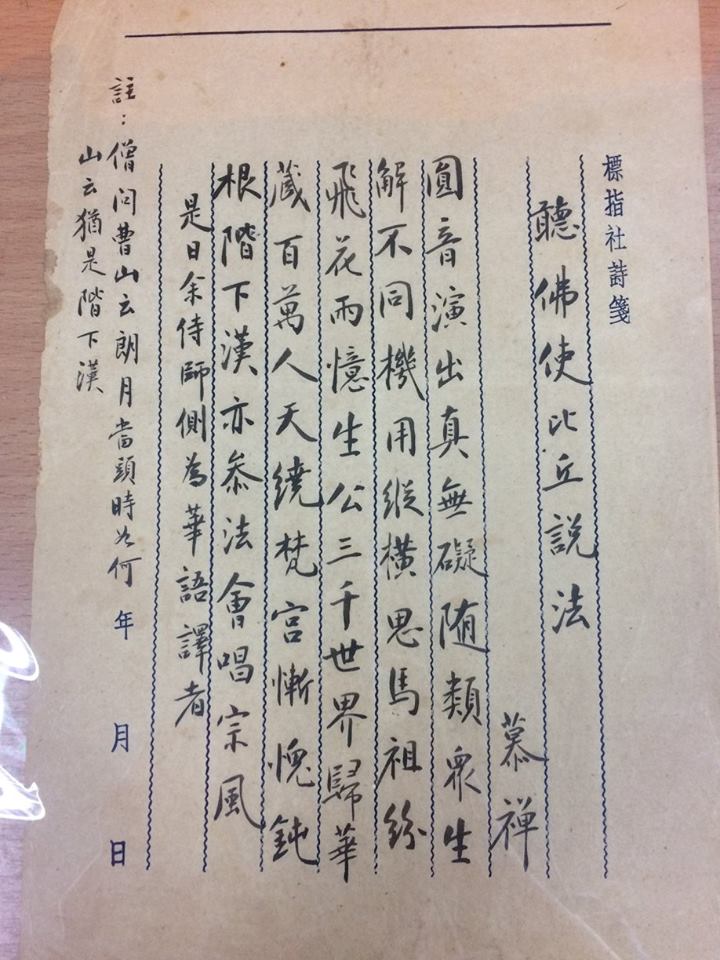 標指社詩箋
聽佛使比丘説法
慕禅
圓音演出真無礙随類衆生
解不同機用縱横思馬祖紛
飛花雨憶生公三千世界歸華
蔵百萬人天繞梵宮慚愧鈍
根階下漢亦叅法會唱宗風
是日余侍師側為華語譯者
年 月 日
註：僧问曹山云朗月當頭時如何
山云猶是階下漢